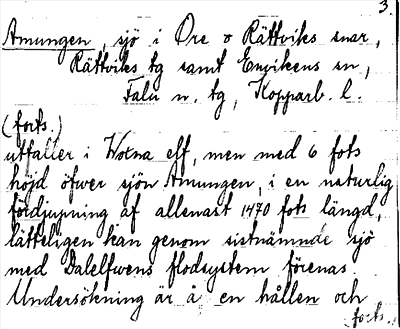 3.
Amungen, sjö i Ore o Rättviks snar,
Rättviks tg samt Envikens sn,
Falu n. tg, Kopparb. l.
(forts.)
utfaller i Wotna elf, men med 6 fots
höjd öfwer sjön Amungen, i en naturlig
fördjupning af allenast 1470 fots längd,
lätteligen kan genom sistnämnde sjö
med Dalelfwens flodsystem förenas.
Undersökning är å en hållen och
forts.